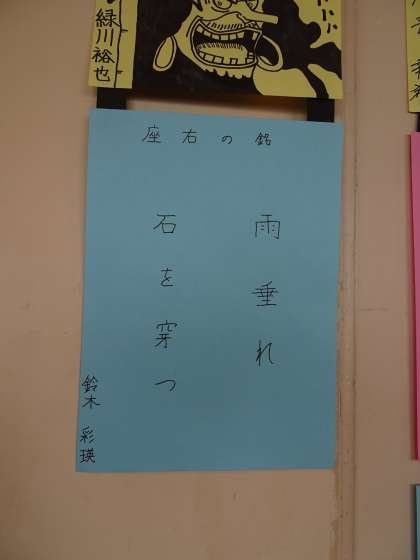 緑川裕也
座右の銘
雨垂れ
石を穿つ
鈴木彩瑛